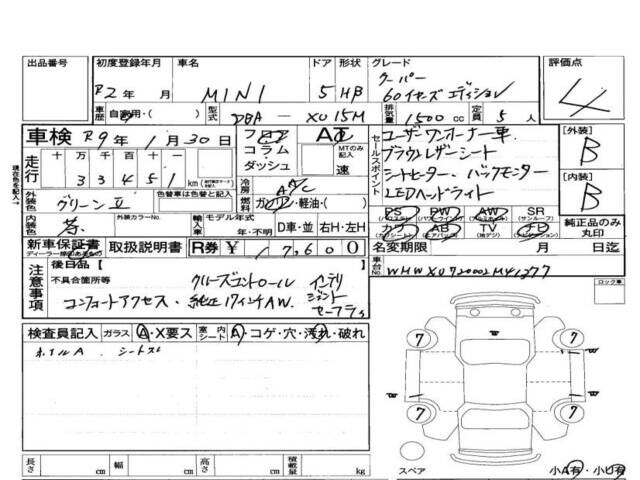 出品番号 初度登録年月 車名 ドア 形状 グレード 評価点
R2年 月 MINI 5 HB クーパー
60イヤーズエディション 4
車歴 自家用・( ) 型式 DBA-XU15M 排気量 1500cc 定員 5人
車検 R9年1月30日 フロア コラム ダッシュ MTのみ記入 速
走行 十 万 千 百 十 一
33451 km
冷房 A/C
セールスポイント
ユーザーワンオーナー車
ブラウンレザーシート
シートヒーター、バックモニター
LEDヘッドライト
[外装] B
[内装] B
外装色 グリーンⅡ 色替車は色替色も記入 燃料 ガソリン・軽油・( )
内装色 茶 外装カラーNo. 輸入車 モデル年式 年・不明 D車・並 右H・左H
PS PW AW SR (サンルーフ)
カワ AB TV ナビ 純正品のみ丸印
新車保証書 取扱説明書 R券 ¥17,600 名変期限 月 日迄
ディーラー
注意事項 後日品【
不具合箇所等 クルーズコントロール インテリジェントセーフティ
コンフォートアクセス、純正17インチAW、
車台No. WMWXU720002M41277
ロック車
検査員記入 ガラス A・X要ス 室内シート A・コゲ・穴・汚れ・破れ
ホイルA、シートスレ
7 7
7 7
長さ cm 幅 cm 高さ cm 積載量 kg
スペア 小A有・小U有
現在色を記入→